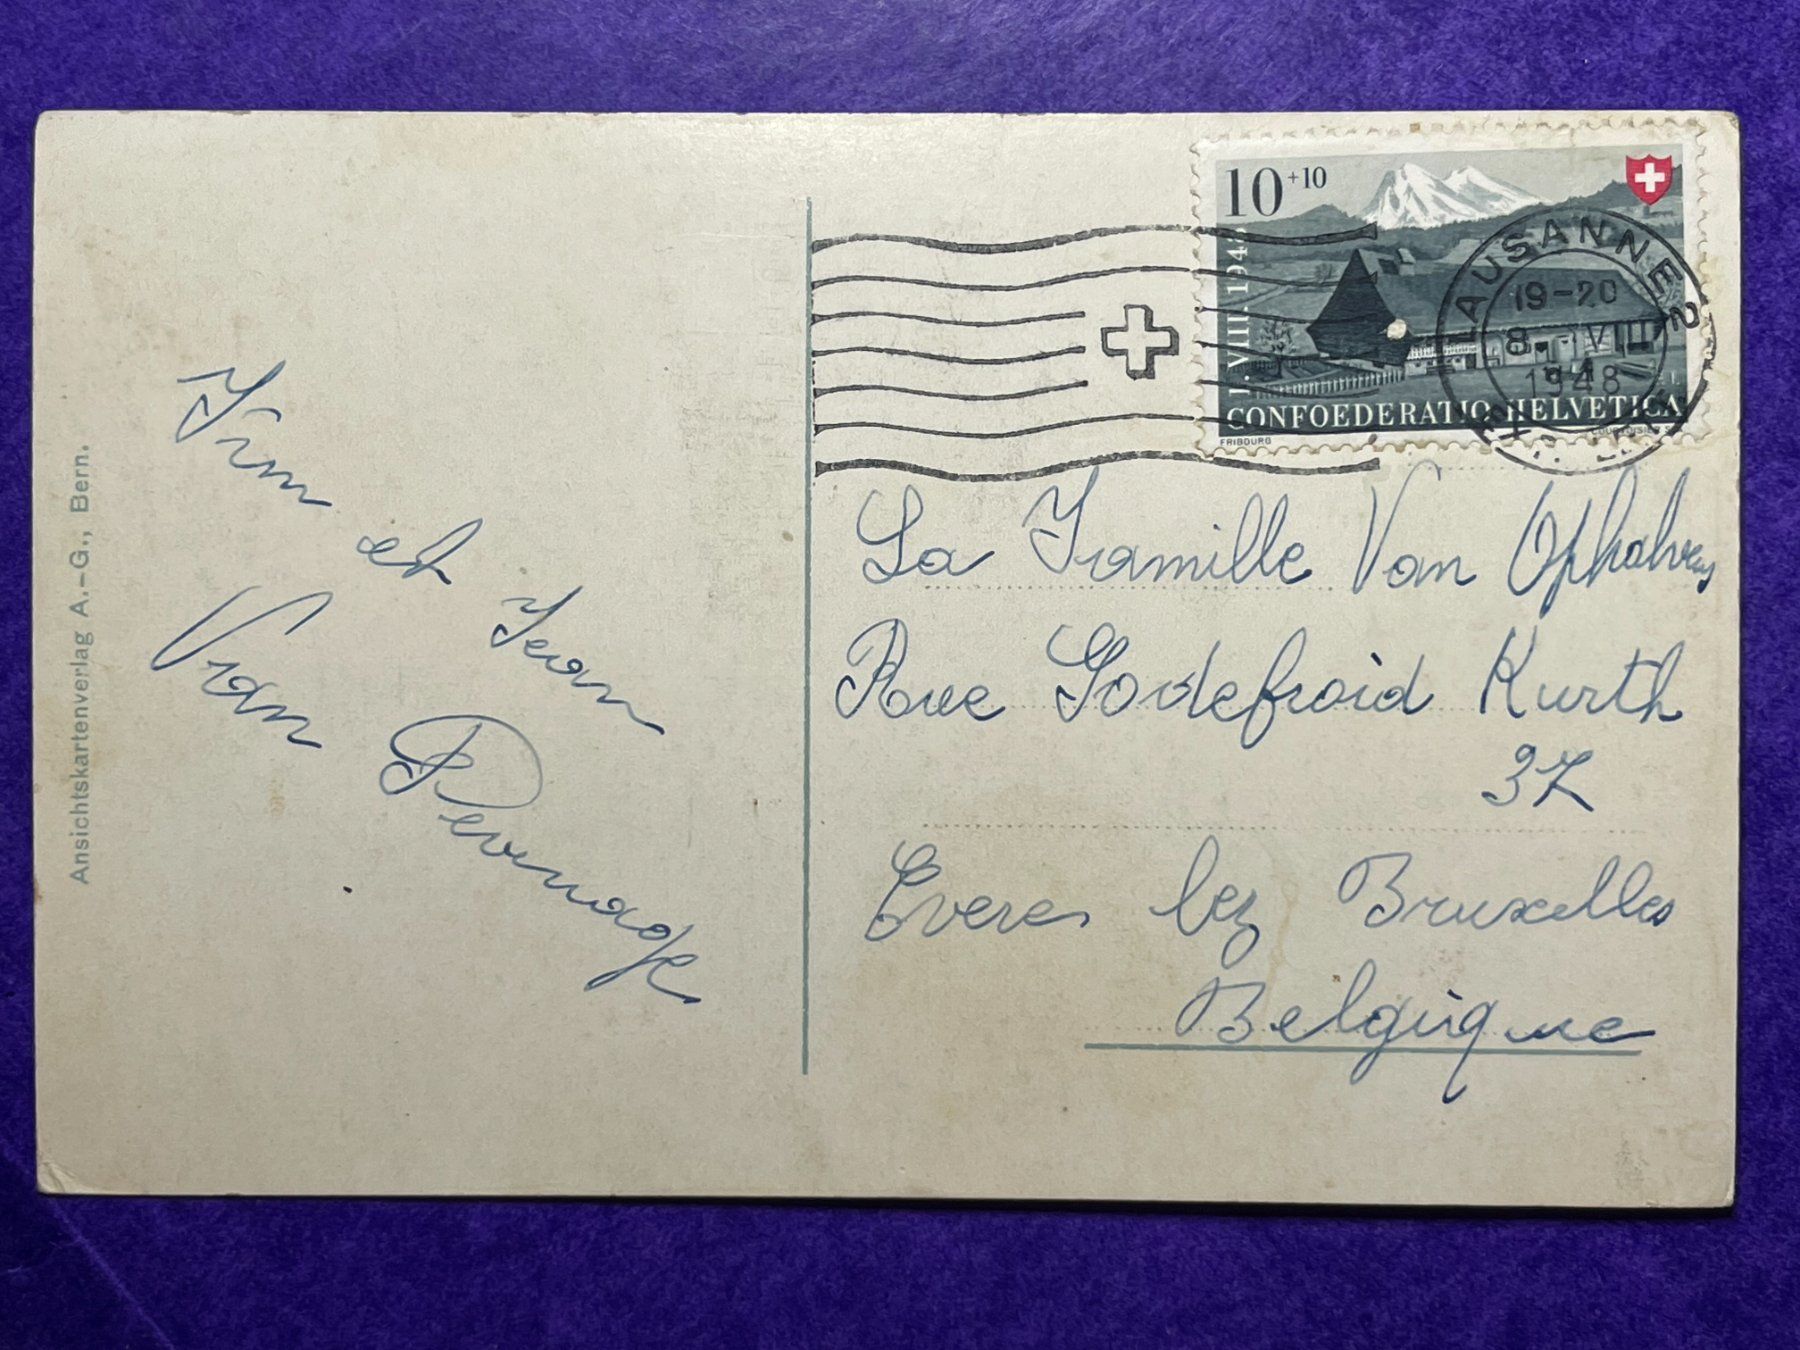 Ansichtskartenverlag A.-G., Bern.
et Jean
Van Pevenage
10 +10
1. VIII. 194
CONFOEDERATIO HELVETICA
FRIBOURG
LAUSANNE 2
19-20
8. VIII
1948
La Famille Van Ophalvens
Rue Godefroid Kurth
37
Evere lez Bruxelles
Belgique